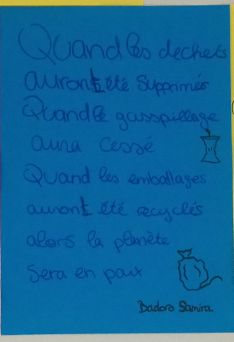 Quand les dechets
auront été supprimés
Quand le gasspillage
aura cessé
Quand les emballages
auront été recyclés
alors la planète
Sera en paix
Badoro Samira